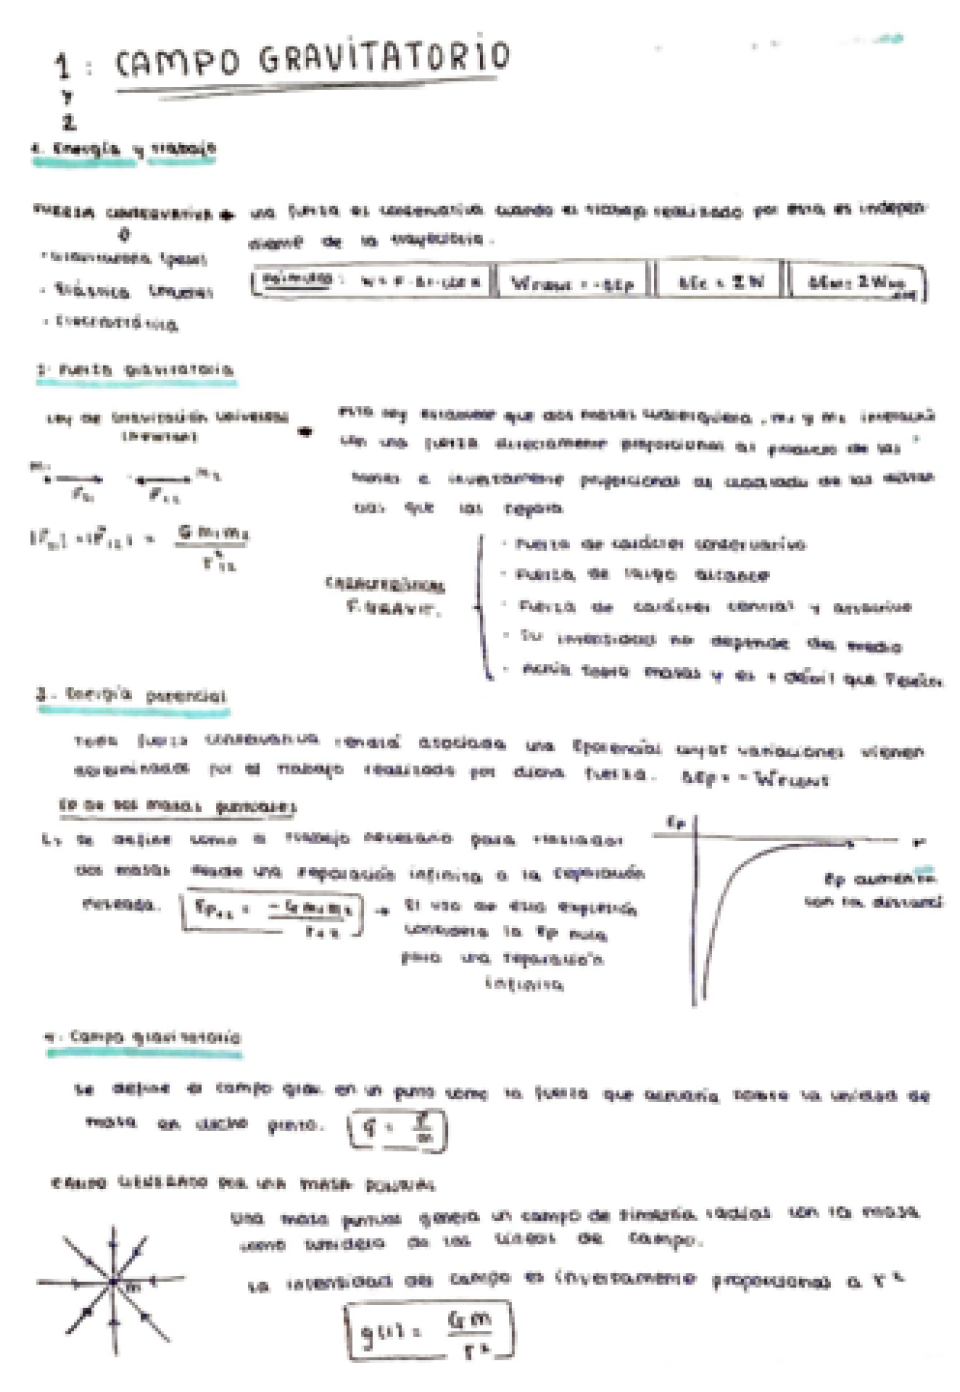 1 : CAMPO GRAVITATORIO
y
2
1. Energía y trabajo
FUERZA CONSERVATIVA → una fuerza es conservativa cuando el trabajo realizado por esta es indepen-
diente de la trayectoria.
· Gravitatoria (peso)
· Elástica (muelles)
· Electrostática
Fórmulas : W = F · Δr · cos α
WFcons = -ΔEp
ΔEc = ΣW
2. Fuerza gravitatoria
Ley de Gravitación Universal
(Newton)
→ esta ley establece que dos masas cualesquiera, m1 y m2 interactú
con una fuerza directamente proporcional al producto de las
masas e inversamente proporcional al cuadrado de las distan
cias que las separa
m1 F21 F12 m2
|F21| = |F12| = G m1 m2 / r²12
CARACTERÍSTICAS
F. GRAVIT.
· Fuerza de carácter conservativo
· Fuerza de largo alcance
· Fuerza de carácter central y atractivo
· Su intensidad no depende del medio
· Actúa sobre masas y es + débil que Feléctr.
3. Energía potencial
Toda fuerza conservativa tendrá asociada una Epotencial cuyas variaciones vienen
determinadas por el trabajo realizado por dicha fuerza. ΔEp = - WFcons
Ep de dos masas puntuales
↳ Se define como el trabajo necesario para trasladar
dos masas desde una separación infinita a la separación
deseada. Ep12 = -G m1 m2 / r12 → El uso de esta expresión
considera la Ep nula
para una separación
infinita
Ep
r
Ep aumenta
con la distanci
4. Campo gravitatorio
Se define el campo grav. en un punto como la fuerza que actuaría sobre la unidad de
masa en dicho punto. g = F / m
CAMPO GENERADO POR UNA MASA PUNTUAL
Una masa puntual genera un campo de simetría radial con la masa
como sumidero de las líneas de campo.
m
La intensidad del campo es inversamente proporcional a r²
g(r) = G m / r²